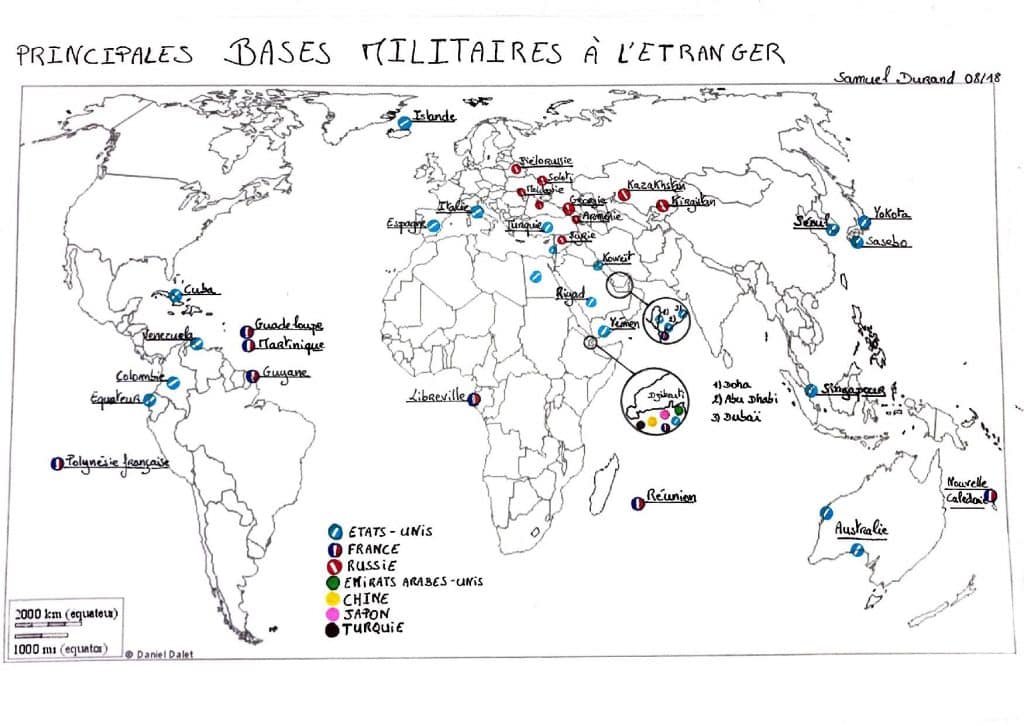 PRINCIPALES BASES MILITAIRES À L'ETRANGER
Samuel Durand 08/18
Islande
Biélorussie
Moldavie
Kazakhstan
Georgie
Kirgistan
Arménie
Italie
Espagne
Turquie
Syrie
Koweit
Séoul
Yokota
Sasebo
Riyad
Yémen
Cuba
Venezuela
Guadeloupe
Martinique
Colombie
Guyane
Equateur
Libreville
Djibouti
1) 2) 3)
1) Doha
2) Abu Dhabi
3) Dubaï
Singapour
Polynésie française
Réunion
Nouvelle
Calédonie
Australie
ETATS-UNIS
FRANCE
RUSSIE
EMIRATS ARABES-UNIS
CHINE
JAPON
TURQUIE
2000 km (equateur)
1000 mi (equator)
© Daniel Dalet